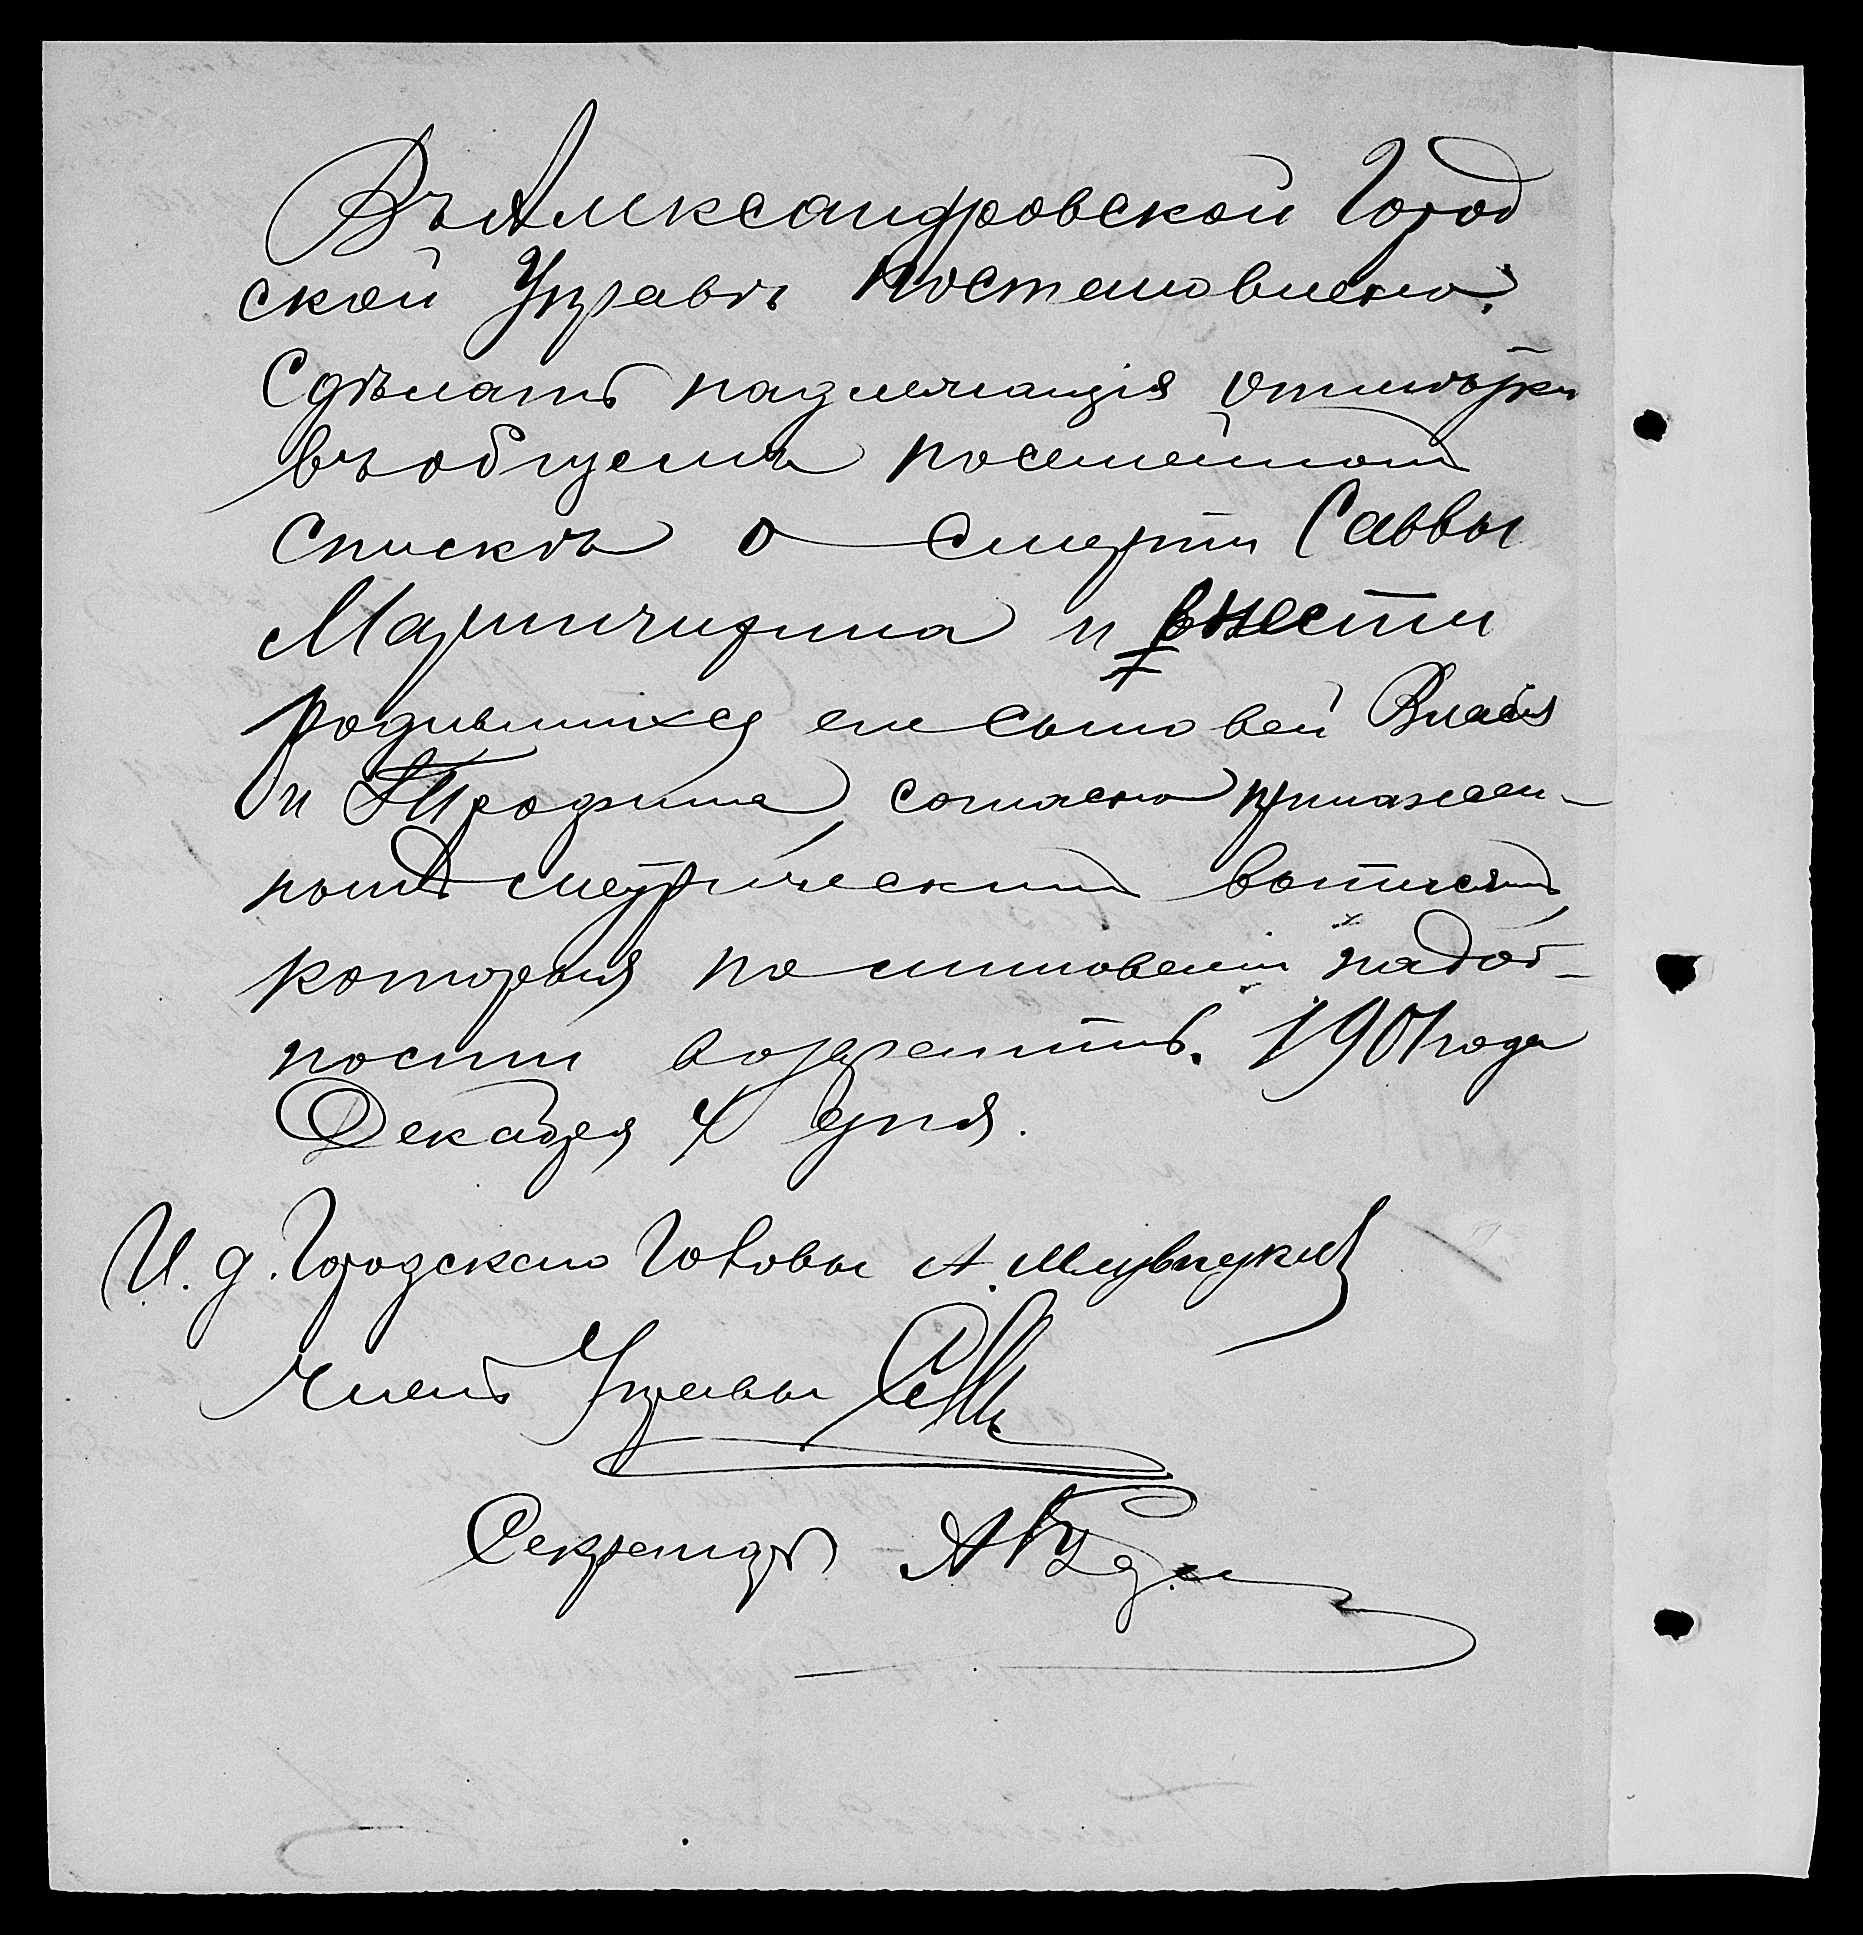 Въ Александровской Город
ской Управѣ постановлено:
Сдѣлать надлежащія отмѣтки
въ общемъ посемейномъ
спискѣ о смерти Саввы
и внести
родившихся ея сыновей Власія
и Трофима, согласно приложен-
нымъ метрическимъ выписямъ,
которыя по миновеніи надоб-
ности возвратить. 1901 года
Декабря 4 дня.
И. д. Городского Головы А.
Членъ Управы
Секретарь А